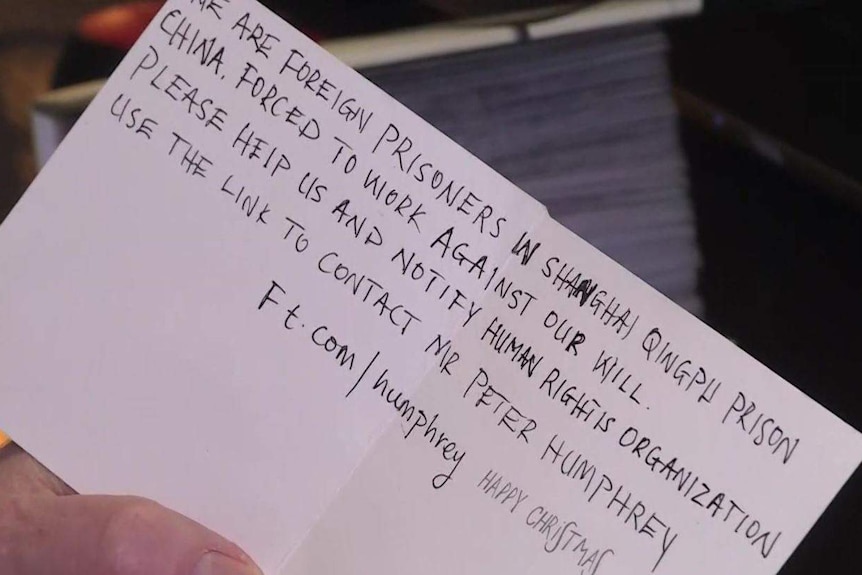 WE ARE FOREIGN PRISONERS IN SHANGHAI QINGPU PRISON
CHINA. FORCED TO WORK AGAINST OUR WILL.
PLEASE HELP US AND NOTIFY HUMAN RIGHTIS ORGANIZATION
USE THE LINK TO CONTACT MR PETER HUMPHREY
Ft.com/humphrey
HAPPY CHRISTMAS